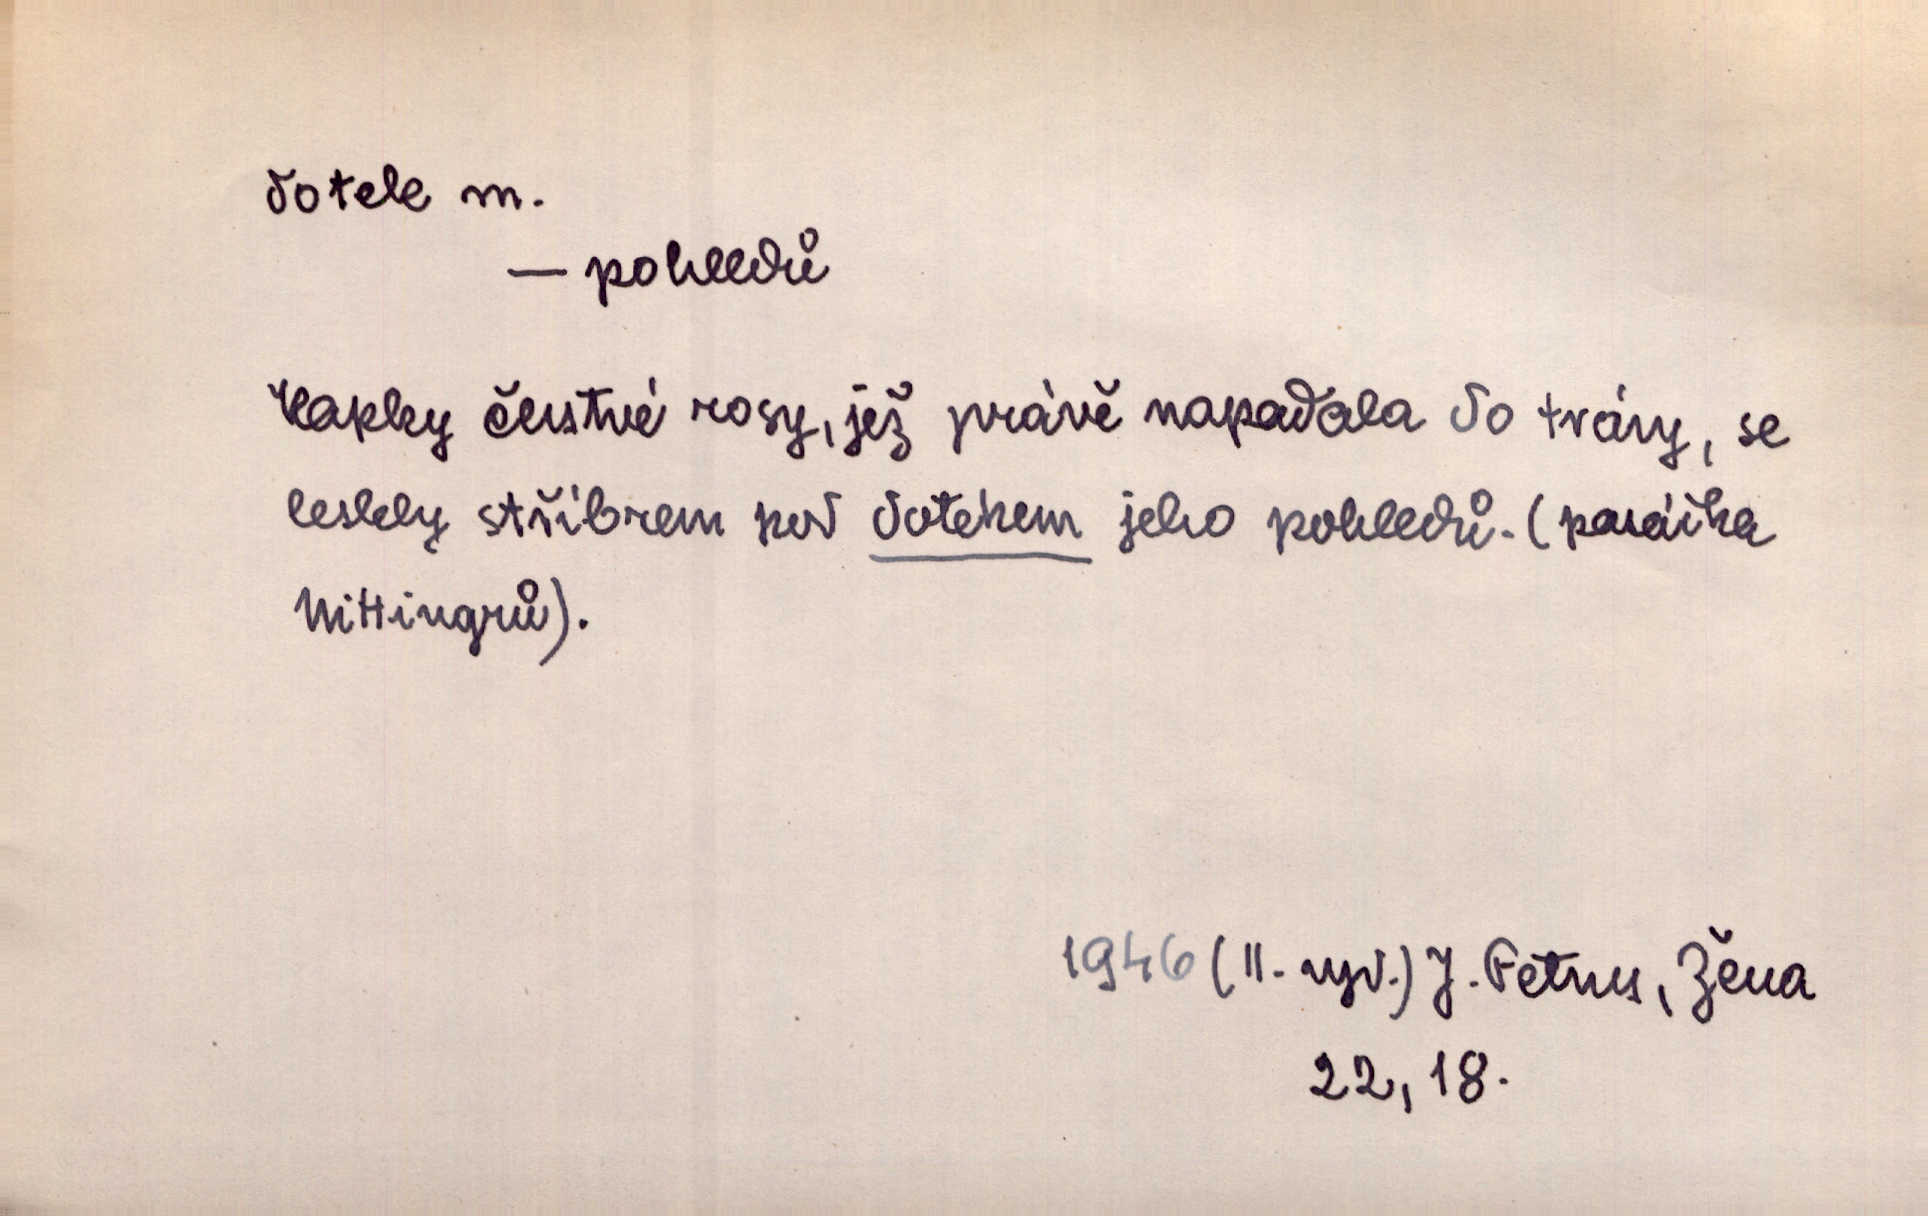 dotek m.
— pohledů
Kapky čerstvé rosy, jež právě napadala do trávy, se
leskly stříbrem pod dotekem jeho pohledů. (pasáčka
Nittingrů).
1946 (II. vyd.) J. Petrus, Žena
22, 18.